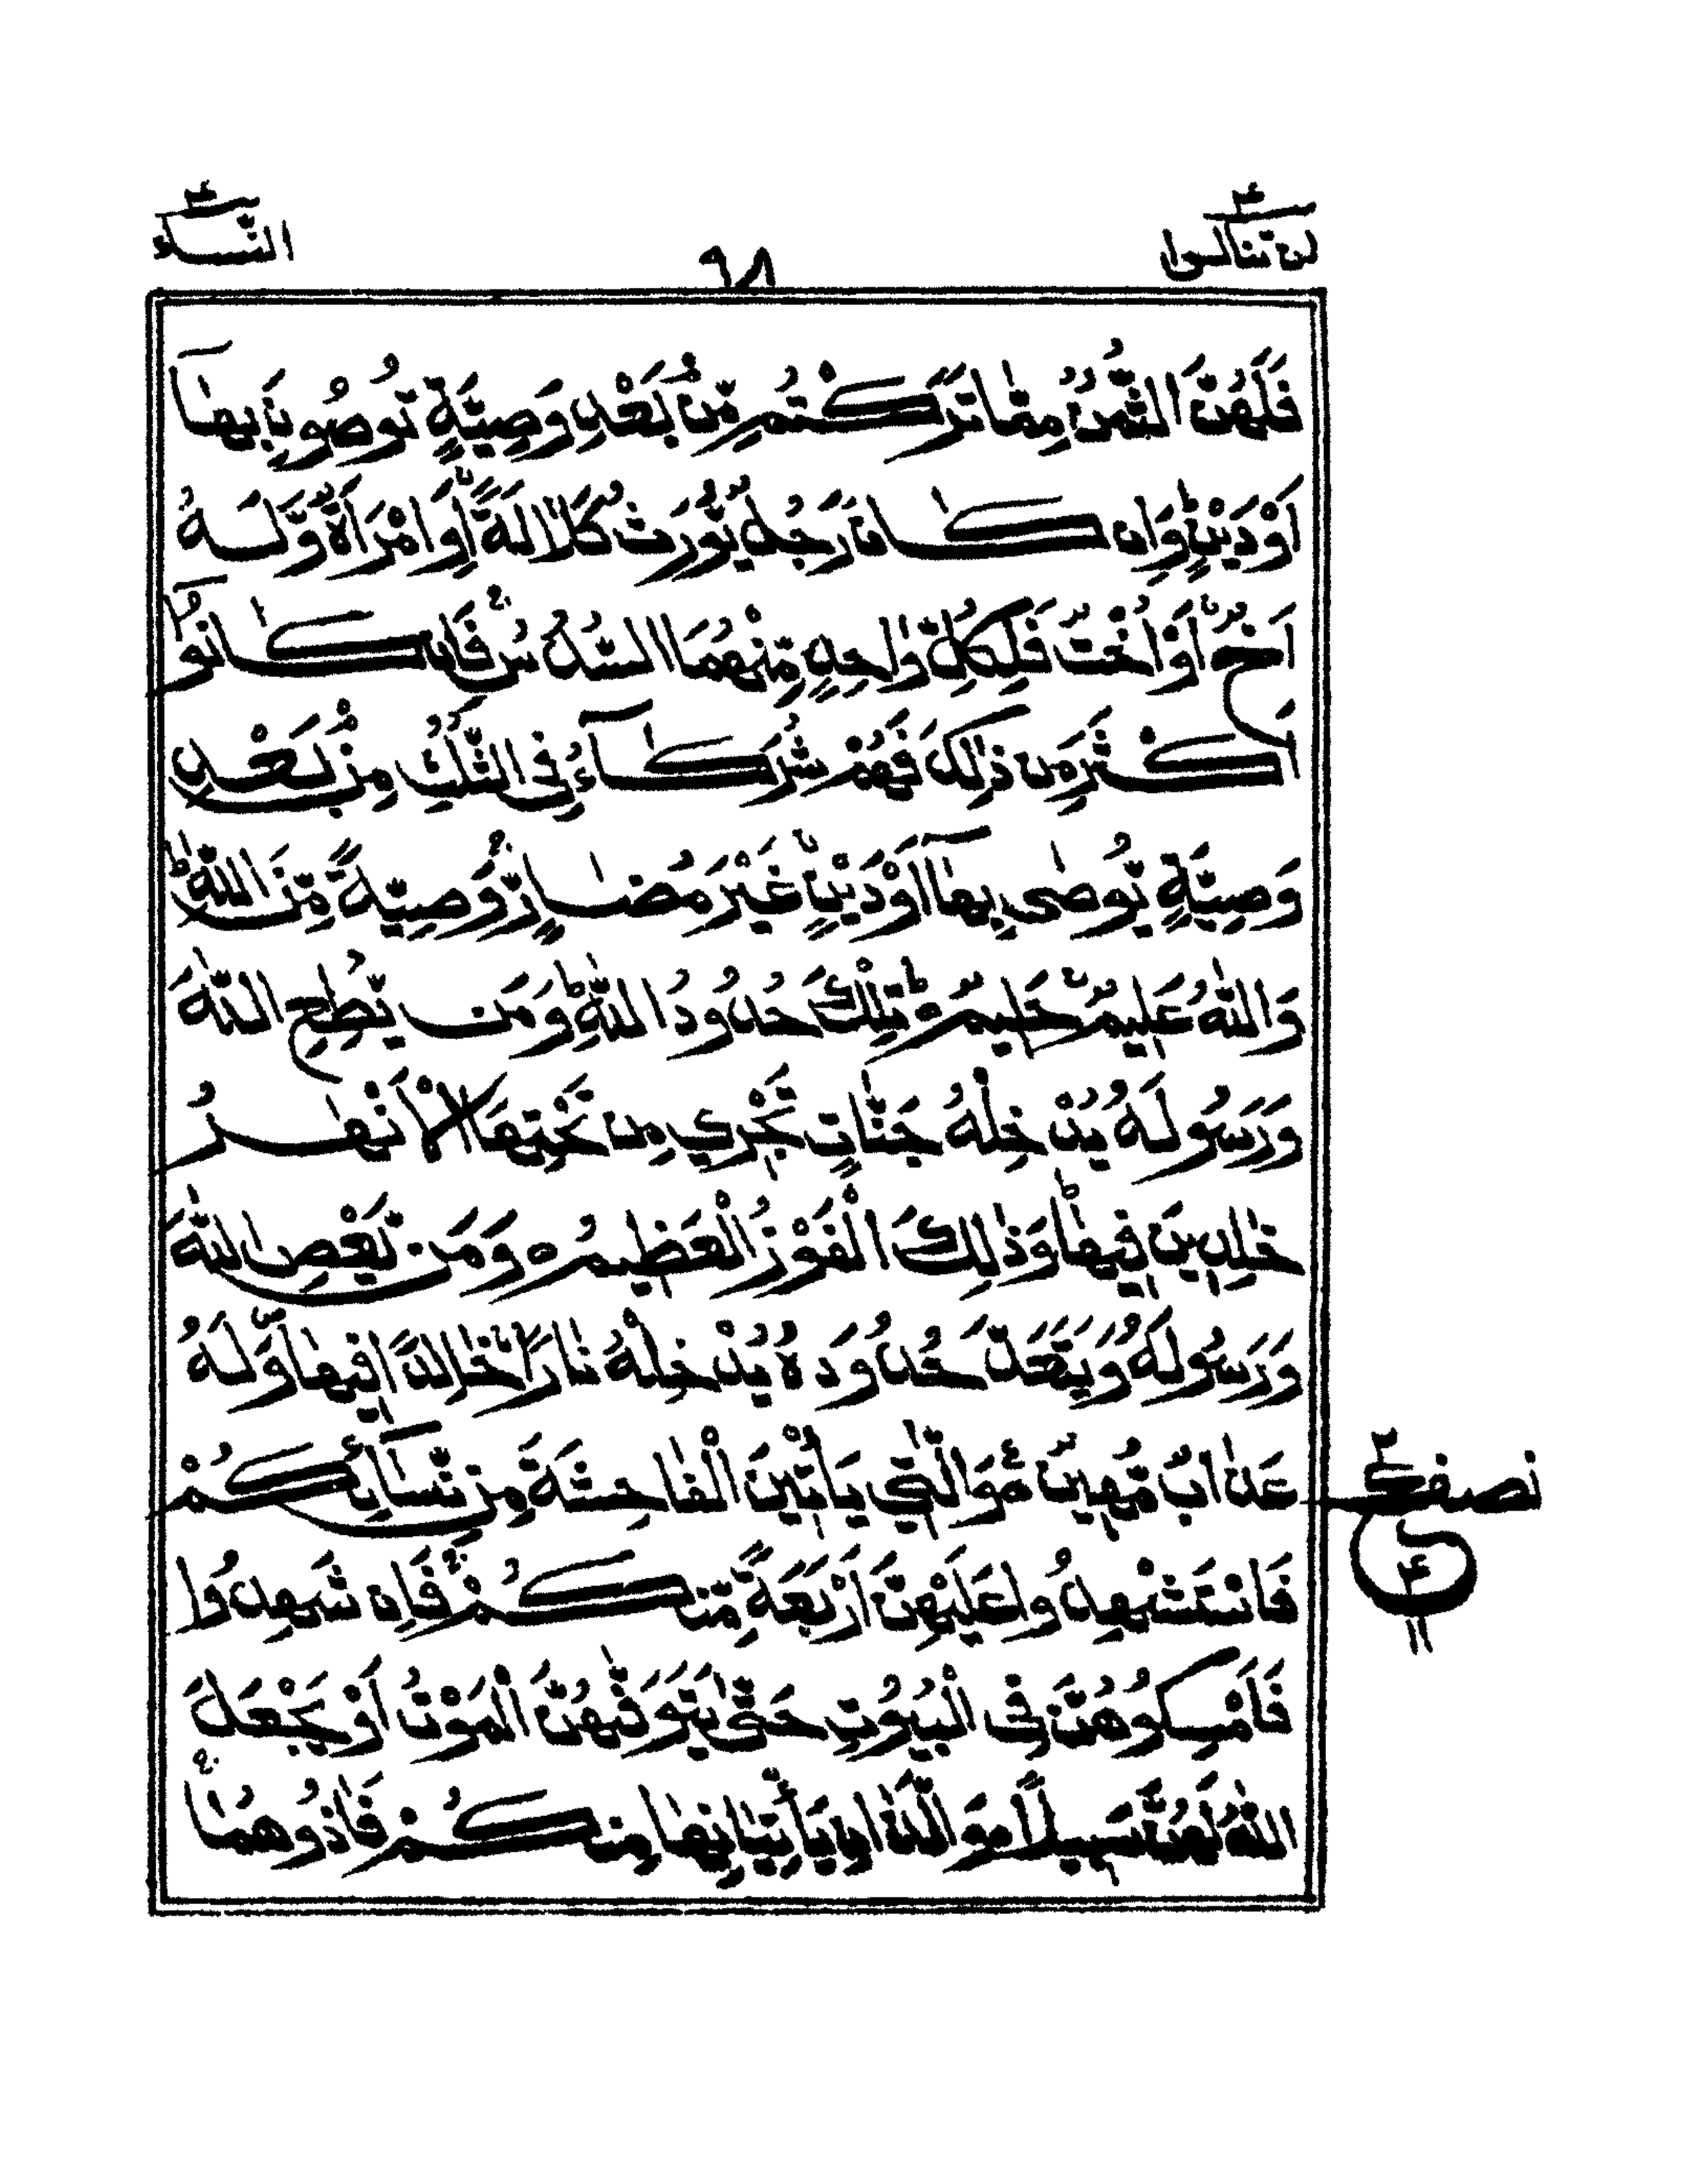 لن تنالوا ۴
۹۸
النساء ۴
فَلَهُنَّ الثُّمُنُ مِمَّا تَرَكْتُمْ مِّنْۢ بَعْدِ وَصِيَّةٍ تُوصُونَ بِهَآ
اَوْ دَيْنٍؕ وَاِنْ كَانَ رَجُلٌ يُّوْرَثُ كَلٰلَةً اَوِ امْرَاَةٌ وَّلَهٗ
اَخٌ اَوْ اُخْتٌ فَلِكُلِّ وَاحِدٍ مِّنْهُمَا السُّدُسُۚ فَاِنْ كَانُوْٓا
اَكْثَرَ مِنْ ذٰلِكَ فَهُمْ شُرَكَآءُ فِى الثُّلُثِ مِنْۢ بَعْدِ
وَصِيَّةٍ يُّوْصٰى بِهَآ اَوْ دَيْنٍۙ غَيْرَ مُضَآرٍّۚ وَصِيَّةً مِّنَ اللّٰهِؕ
وَاللّٰهُ عَلِيْمٌ حَلِيْمٌ ؕ تِلْكَ حُدُوْدُ اللّٰهِؕ وَمَنْ يُّطِعِ اللّٰهَ
وَرَسُوْلَهٗ يُدْخِلْهُ جَنّٰتٍ تَجْرِيْ مِنْ تَحْتِهَا الْاَنْهٰرُ
خٰلِدِيْنَ فِيْهَاؕ وَذٰلِكَ الْفَوْزُ الْعَظِيْمُ ه وَمَنْ يَّعْصِ اللّٰهَ
وَرَسُوْلَهٗ وَيَتَعَدَّ حُدُوْدَهٗ يُدْخِلْهُ نَارًا خَالِدًا فِيْهَا وَلَهٗ
عَذَابٌ مُّهِيْنٌ ع وَالّٰتِيْ يَاْتِيْنَ الْفَاحِشَةَ مِنْ نِّسَآئِكُمْ
فَاسْتَشْهِدُوْا عَلَيْهِنَّ اَرْبَعَةً مِّنْكُمْۚ فَاِنْ شَهِدُوْا
فَاَمْسِكُوْهُنَّ فِى الْبُيُوْتِ حَتّٰى يَتَوَفّٰهُنَّ الْمَوْتُ اَوْ يَجْعَلَ
اللّٰهُ لَهُنَّ سَبِيْلًا وَالَّذٰنِ يَاْتِيٰنِهَا مِنْكُمْ فَاٰذُوْهُمَاۚ
نصف
ع
۴